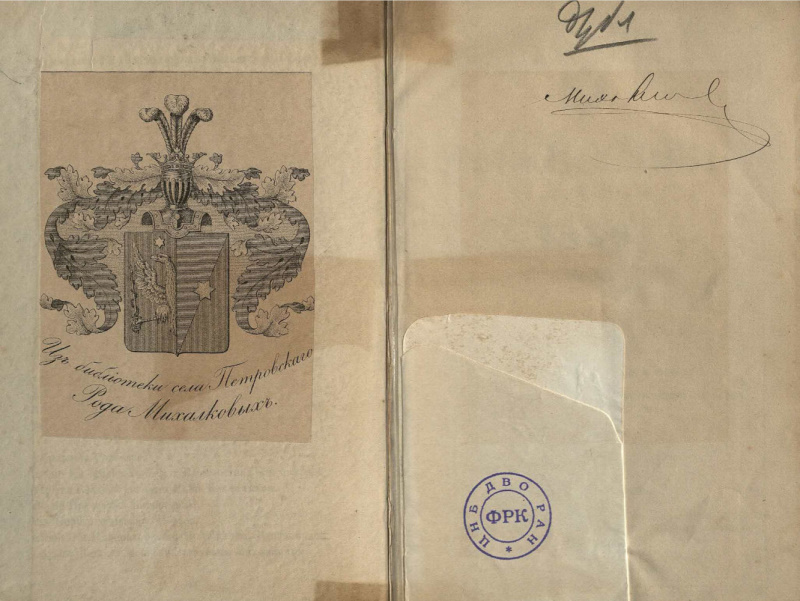 Изъ библіотеки села Петровскаго
Рода Михалковыхъ.
дубл
ЦНБ ДВО РАН *
ФРК